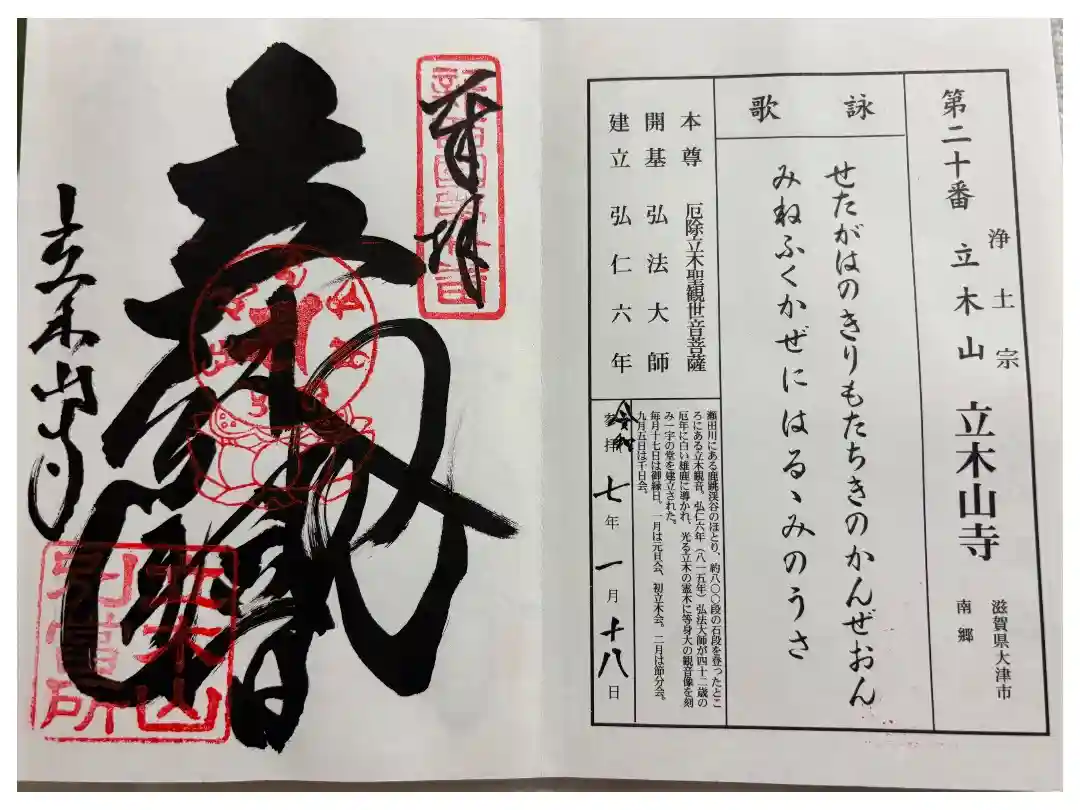 第二十番 立木山 立木山寺
浄土宗
滋賀県大津市
南郷
詠歌
せたがはのきりもたちきのかんぜおん
みねふくかぜにはるゝみのうさ
本尊 厄除立木聖観世音菩薩
開基 弘法大師
建立 弘仁六年
瀬田川にある鹿跳渓谷のほとり、約八〇〇段の石段を登ったとこ
ろにある立木観音。弘仁六年（八一五年）弘法大師が四十二歳の
厄年に白い雄鹿に導かれ、光る立木の霊木に等身大の観音像を刻
み一宇の堂を建立された。
毎月十七日は御縁日。一月は元旦会、初立木会、二月は節分会、
九月五日は千日会。
参拝 令和七年一月十八日
奉拝
立木山寺
立木山
別當所